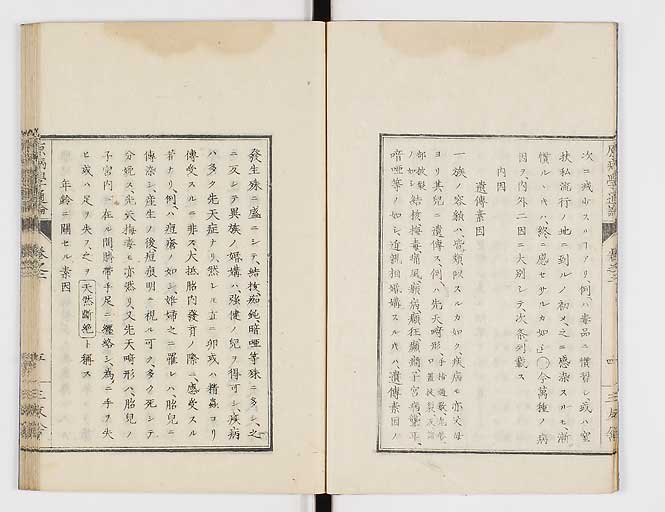 次ニ減少スル┐アリ例ハ毒品ニ慣習シ或ハ窒
扶私流行ノ地ニ到ルノ初メ、之ニ感染スリモ、漸
慣ル丶キハ、終ニ感セサルカ如シ〇今萬種ノ病
因ヲ、内外二因ニ大別シテ、次條列載ス
内因
遺傳素因
一族ノ容貌ハ皆類似スルカ如ク疾病モ亦父母
ヨリ其兒ニ遺傳ス、例ハ先天畸形、
ノ如シ結核、梅毒、痛風、癲癇、狂癲癇、子宮病、聾耳、
喑啞等ノ如シ、近親相婚媾スル片ハ、遺傳素因ノ
發生殊ニ盛ニシテ、結核、痴鈍、暗啞等殊ニ多シ、之
ニ反シテ異族ノ婚媾ハ、強健ノ兒ヲ得可シ、疾病
ハ多ク先天症ナリ然レ𪜈直ニ卵或ハ精蟲ヨリ
傳受スルニ非ス大抵胎内發育ノ際ニ感受スル
者ナリ、例ハ痘瘡ノ如シ、姙婦之ニ罹レハ胎兒ニ
傳染シ、産生ノ後痘痕明ニ視ル可ク、多ク死シテ
分娩ス、先天梅毒モ亦然リ、又先天畸形ハ、胎兒ノ
子宮内ニ在ル間臍帶手足ニ纒絡シ、為ニ手ヲ失
ヒ或ハ足ヲ失フ、之ヲ天然斷絶ト稱ス
年齡ニ關セル素因
原病學通論
卷之二
四
三友舎
原病學通論
卷之二
五
三友舎